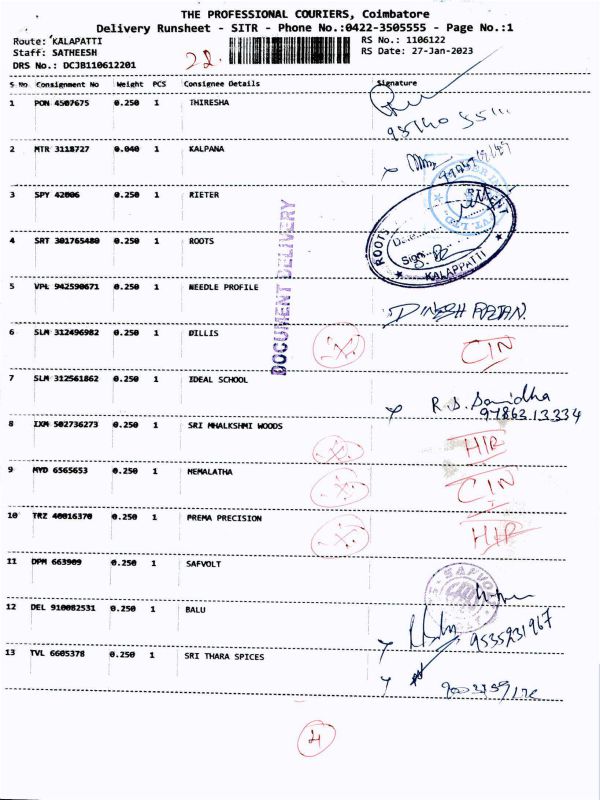 THE PROFESSIONAL COURIERS, Coimbatore
Delivery Runsheet - SITR - Phone No.:0422-3505555 - Page No.:1
Route: KALAPATTI
RS No.: 1106122
Staff: SATHEESH
RS Date: 27-Jan-2023
DRS No.: DCJB110612201
22.
S No Consignment No Weight PCS Consignee Details Signature
1 PON 4507675 0.250 1 THIRESHA
2 MTR 3118727 0.040 1 KALPANA
3 SPY 42006 0.250 1 RIETER
4 SRT 301765480 0.250 1 ROOTS
ROOTS
KALAPPATTI
5 VPL 942590671 0.250 1 NEEDLE PROFILE
DOCUMENT DELIVERY
6 SLM 312496982 0.250 1 DILLIS
CIN
7 SLM 312561862 0.250 1 IDEAL SCHOOL
R.S. Sanidha
97863 13334
8 IXM 502736273 0.250 1 SRI MHALKSHMI WOODS
HIR
9 MYD 6565653 0.250 1 MEMALATHA
CIN
10 TRZ 40016370 0.250 1 PREMA PRECISION
HIR
11 DPM 663909 0.250 1 SAFVOLT
SAFVO
12 DEL 910082531 0.250 1 BALU
9535231967
13 TVL 6605378 0.250 1 SRI THARA SPICES
4